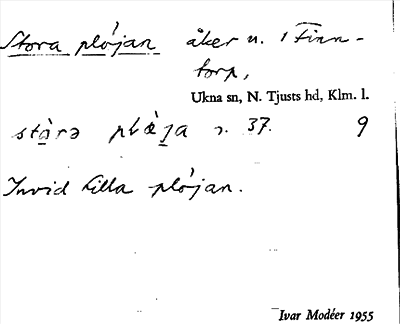 Stora plöjan åker n. i Finn-
torp,
Ukna sn, N. Tjusts hd, Klm. l.
37. 9
Invid Lilla plöjan.
Ivar Modéer 1955